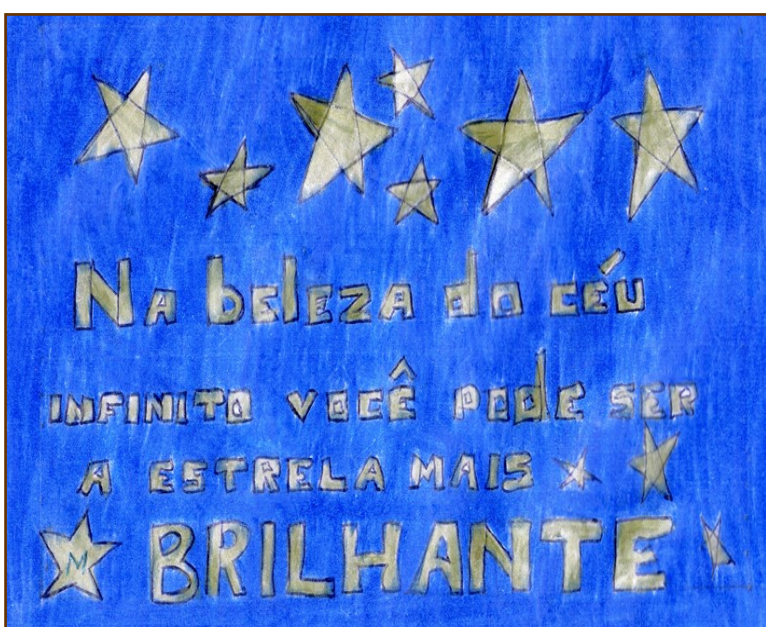 Na beleza do céu
INFINITO VOCÊ PODE SER
A ESTRELA MAIS
M BRILHANTE